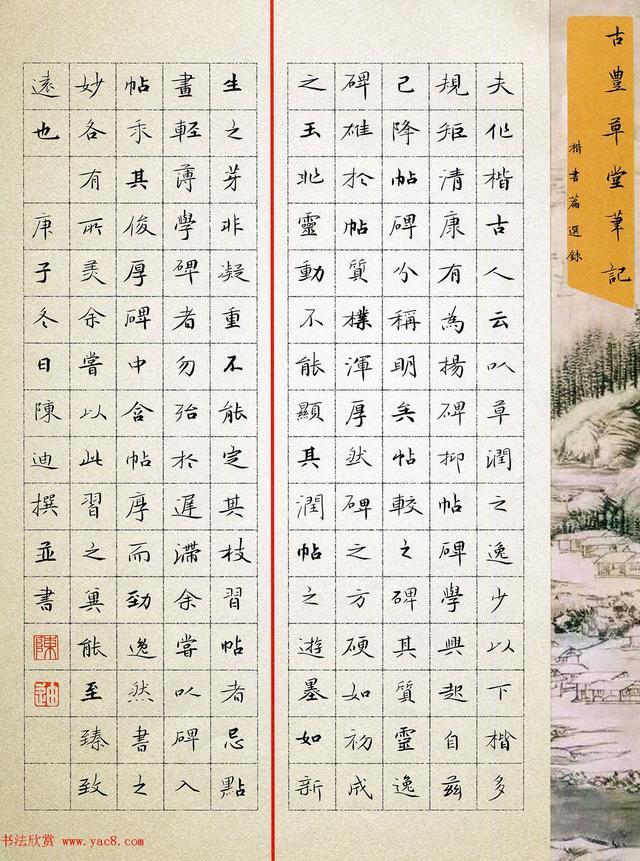 古豐草堂筆記
楷書篇選錄
夫作楷古人云以草潤之逸少以下楷多
規矩清康有為揚碑抑帖碑學興起自茲
己降帖碑分稱明矣帖較之碑其質靈逸
碑雄於帖質樸渾厚然碑之方硬如初成
之玉非靈動不能顯其潤帖之遊墨如新
生之芽非凝重不能定其枝習帖者忌點
畫輕薄學碑者勿殆於遲滯余嘗以碑入
帖乘其俊厚碑中含帖厚而勁逸然書之
妙各有所美余嘗以此習之冀能至臻致
遠也 庚子冬日陳迪撰並書
陳
迪
书法欣赏 www.yac8.com